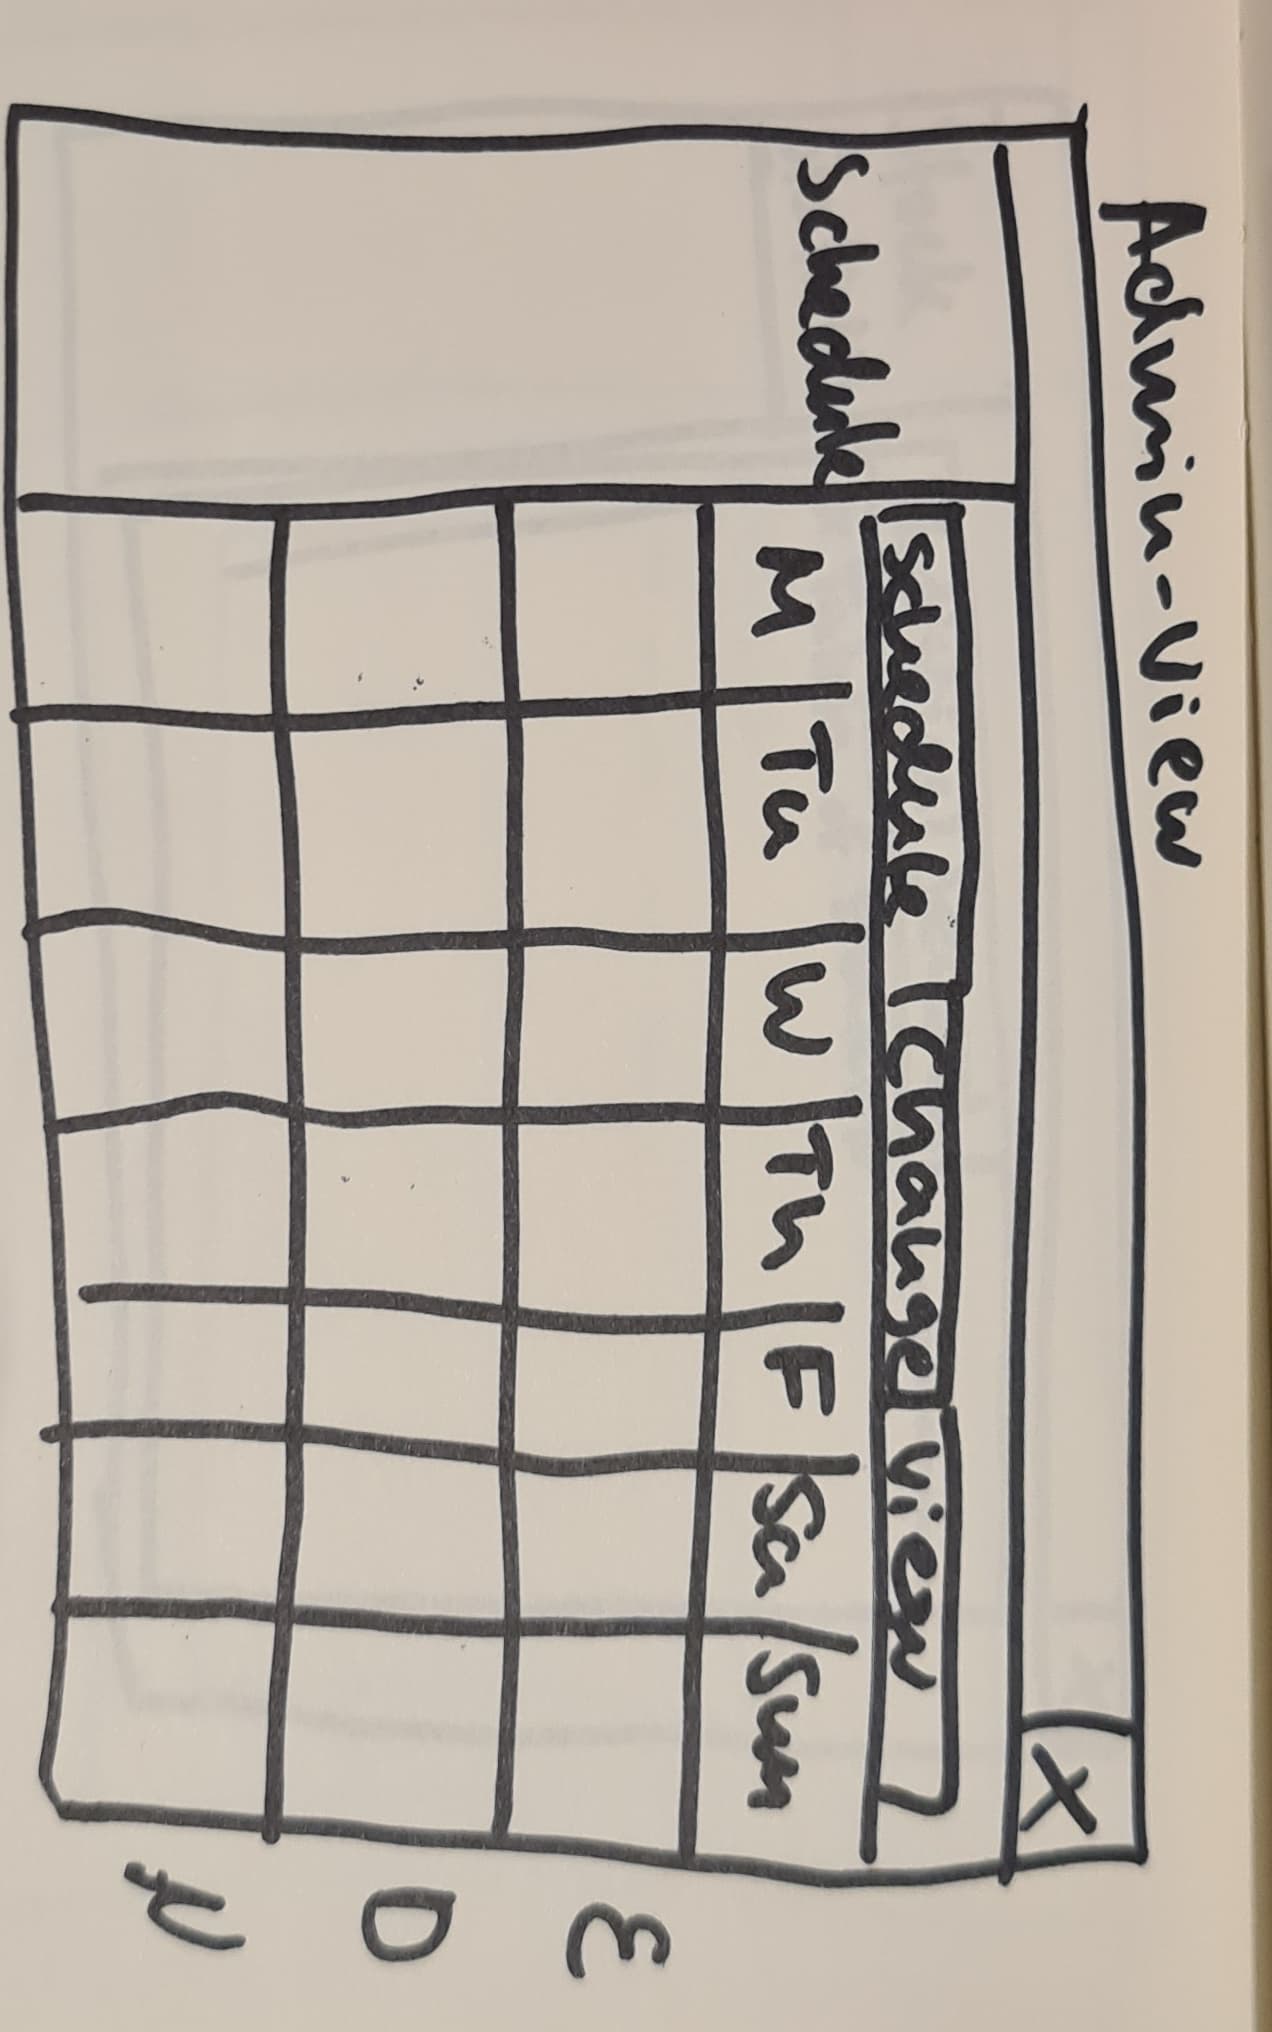 Admin-View
X
Schedule
Schedule Change View
M Tu W Th F Sa Sun
E
D
N